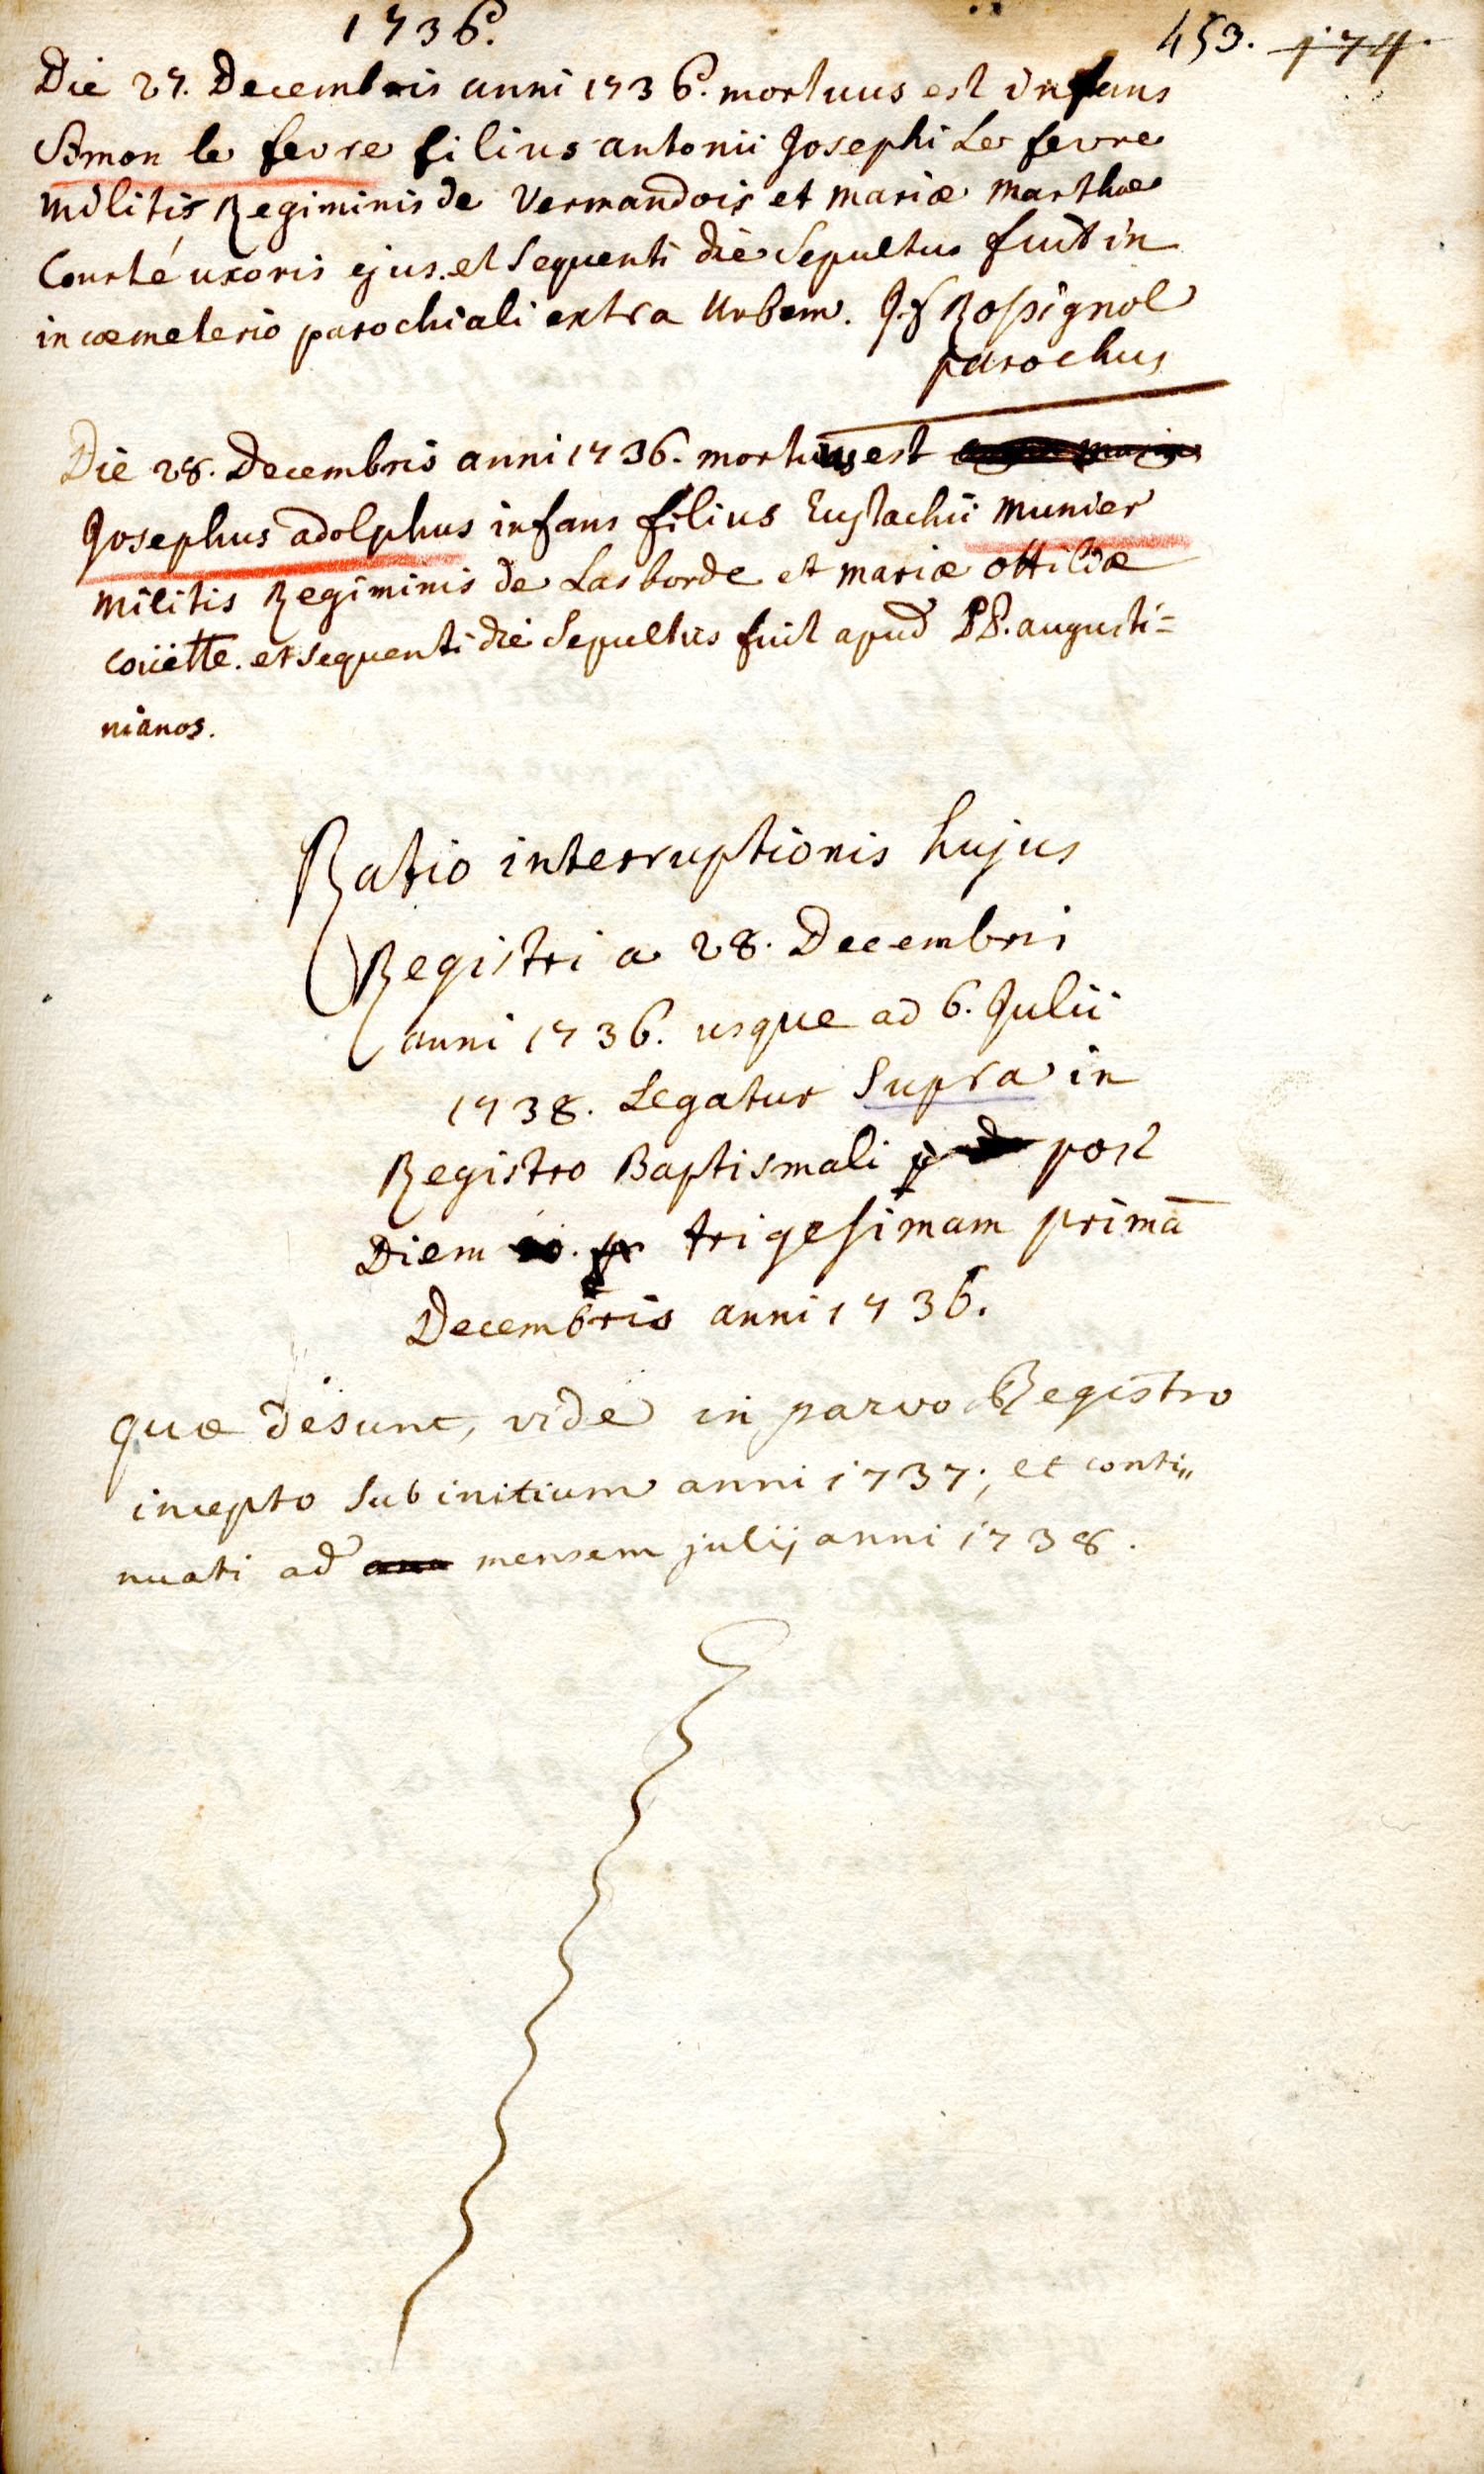 1736.
453. 174.
Die 27. Decembris anni 1736. mortuus est infans
Simon le fevre filius antonii Josephi Le fevre
militis Regiminis de Vermandois et mariæ marthæ
Courté uxoris ejus. et sequenti die sepultus fuit in
in cœmeterio parochiali extra Urbem. J. f Rossignol
parochus
Die 28. Decembris anni 1736. mortuus est
Josephus adolphus infans filius Eustachii munier
militis Regiminis de Lasborde et mariæ ottiliæ
coüette. et sequenti die sepultus fuit apud PP. augusti=
nianos.
Ratio interruptionis hujus
Registri a 28. Decembri
anni 1736. usque ad 6. Julii
1738. Legatur supra in
Registro Baptismali post
Diem trigesimam primā
Decembris anni 1736.
quæ desunt, vide in parvo Registro
incepto sub initium anni 1737; et conti„
nuati ad mensem julij anni 1738.